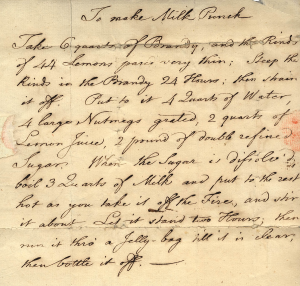 To make Milk Punch
Take 6 quarts of Brandy, and the Rinds
of 44 Lemons pared very thin; Steep the
Rinds in the Brandy 24 Hours; then strain
it off. Put to it 4 Quarts of Water,
4 large Nutmegs grated, 2 quarts of
Lemon Juice, 2 pound of double refined
Sugar. When the Sugar is dissolv'd
boil 3 Quarts of Milk and put to the rest
hot as you take it off the Fire, and stir
it about. Let it stand two Hours; then
run it thro' a Jelly-bag till it is clear;
then bottle it off. —